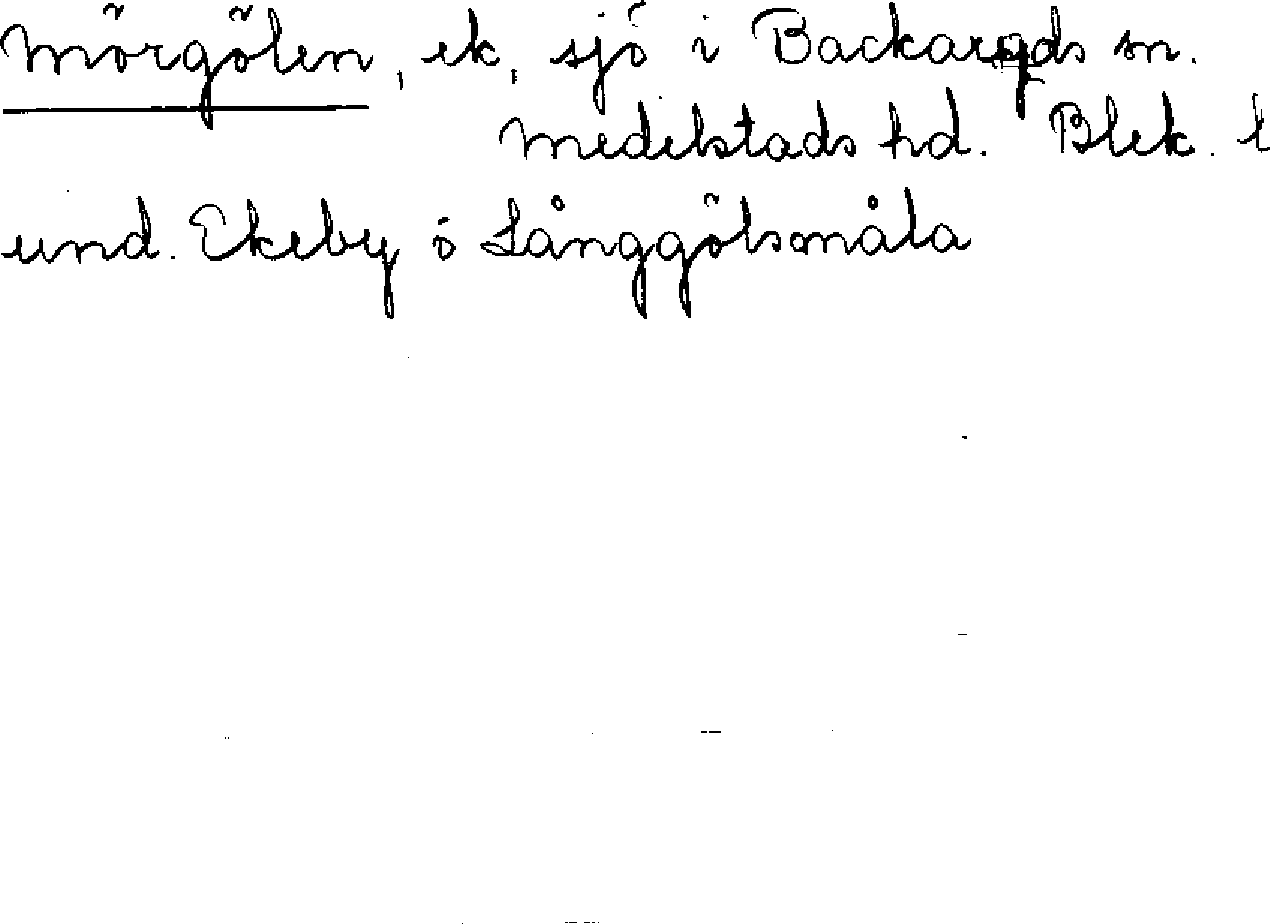 Mörgölen, ek, sjö i Backaryds sn.
Medelstads hd. Blek. l
und. Ekeby ö Långgölsmåla